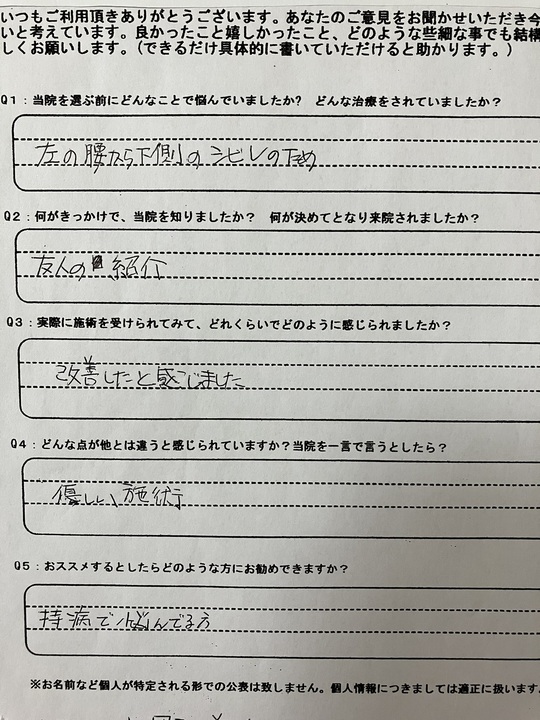 いつもご利用頂きありがとうございます。あなたのご意見をお聞かせいただき今
いと考えています。良かったこと嬉しかったこと、どのような些細な事でも結構
しくお願いします。（できるだけ具体的に書いていただけると助かります。）
Q1：当院を選ぶ前にどんなことで悩んでいましたか？ どんな治療をされていましたか？
左の腰から下側のシビレのため
Q2：何がきっかけで、当院を知りましたか？ 何が決めてとなり来院されましたか？
友人の紹介
Q3：実際に施術を受けられてみて、どれくらいでどのように感じられましたか？
改善したと感じました
Q4：どんな点が他とは違うと感じられていますか？当院を一言で言うとしたら？
優しい施術
Q5：おススメするとしたらどのような方にお勧めできますか？
持病で悩んでる方
※お名前など個人が特定される形での公表は致しません。個人情報につきましては適正に扱います。